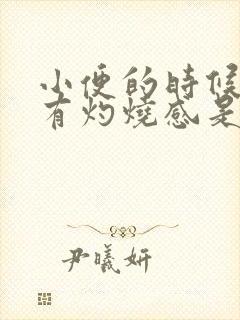 小便的時候
有灼燒感是
尹曦妍